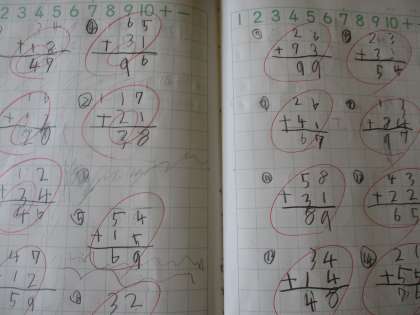 2 3 4 5 6 7 8 9 10 + -
3 4
+ 1 3
4 7
6 5
+ 3 1
9 6
1 6
+ 1 2
2 8
② 1 1 7
+ 2 1
2 8
1 2
+ 3 4
4 6
⑤ 5 4
+ 1 5
6 9
4 7
1 2
5 9
3 2
1 2 3 4 5 6 7 8 9 10 + -
2 6
+ 7 3
9 9
2 3
+ 3 1
5 4
2 6
+ 4 1
6 7
1 3
9 7
5 8
+ 3 1
8 9
4 3
+ 2 2
6
3 4
+ 1 4
4 8
2
+ 5
7